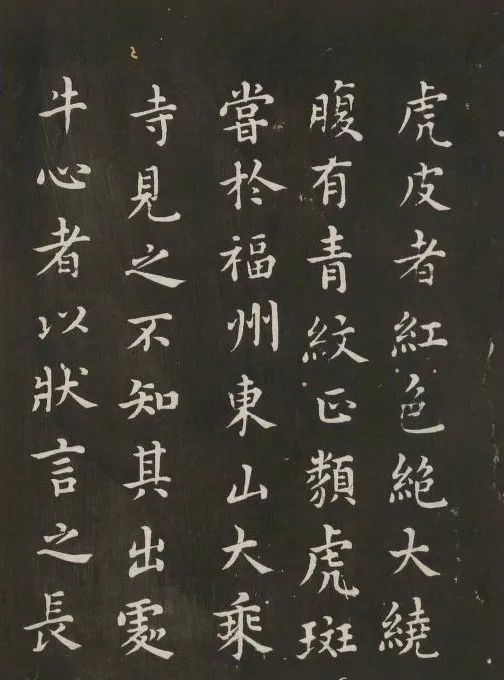 虎皮者紅色絕大繞
腹有青紋正類虎斑
嘗於福州東山大乘
寺見之不知其出處
牛心者以狀言之長